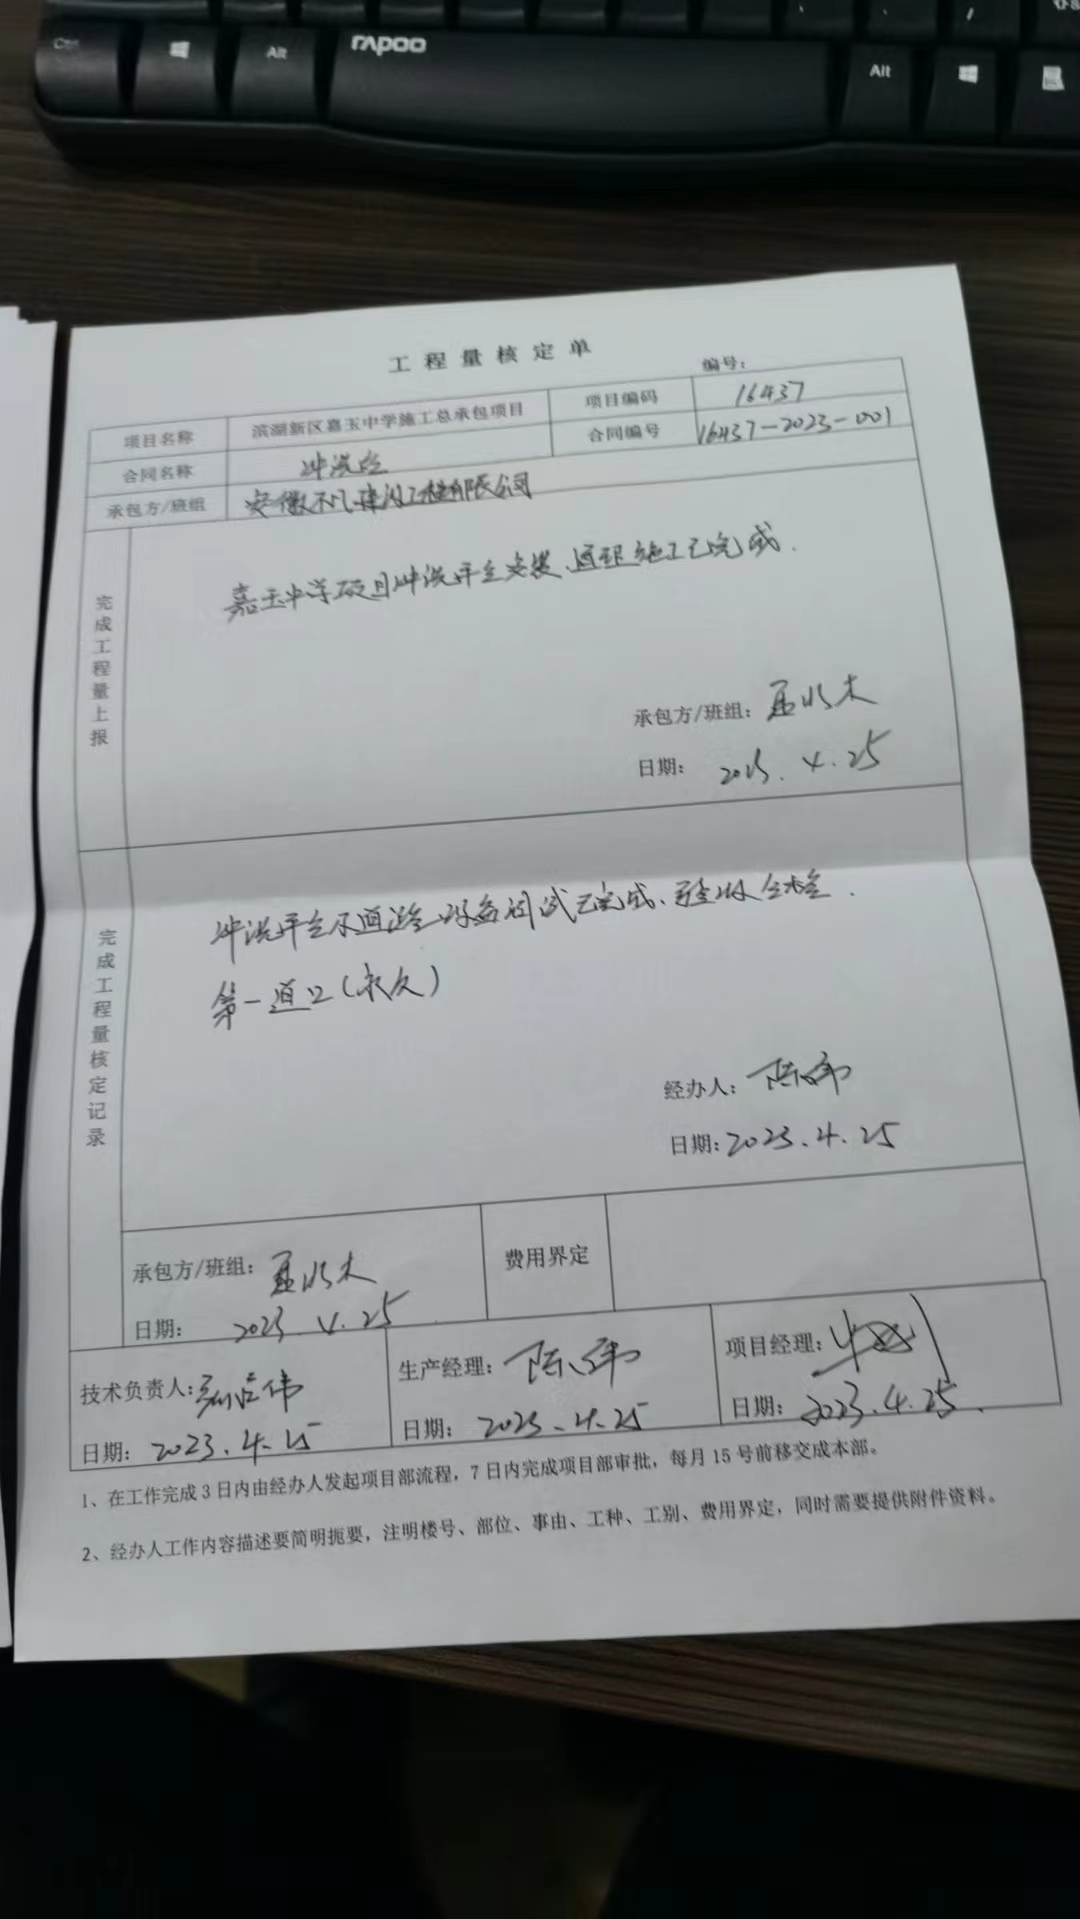 Ctrl Alt rapoo Alt
工程量核定单
编号：
项目名称 滨湖新区嘉玉中学施工总承包项目 项目编码 16437
合同名称 冲洗台 合同编号 16437-2023-001
承包方/班组 安徽不凡建设工程有限公司
完成工程量上报
嘉玉中学项目冲洗平台安装、施工已完成.
承包方/班组：
日期： 2023.4.25
完成工程量核定记录
冲洗平台设备调试已完成、验收合格.
第一道口（永久）
经办人：陈伟
日期：2023.4.25
承包方/班组： 费用界定
日期： 2023.4.25
技术负责人： 生产经理：陈伟 项目经理：
日期：2023.4.25 日期：2023.4.25 日期：2023.4.25.
1、在工作完成3日内由经办人发起项目部流程，7日内完成项目部审批，每月15号前移交成本部。
2、经办人工作内容描述要简明扼要，注明楼号、部位、事由、工种、工别、费用界定，同时需要提供附件资料。